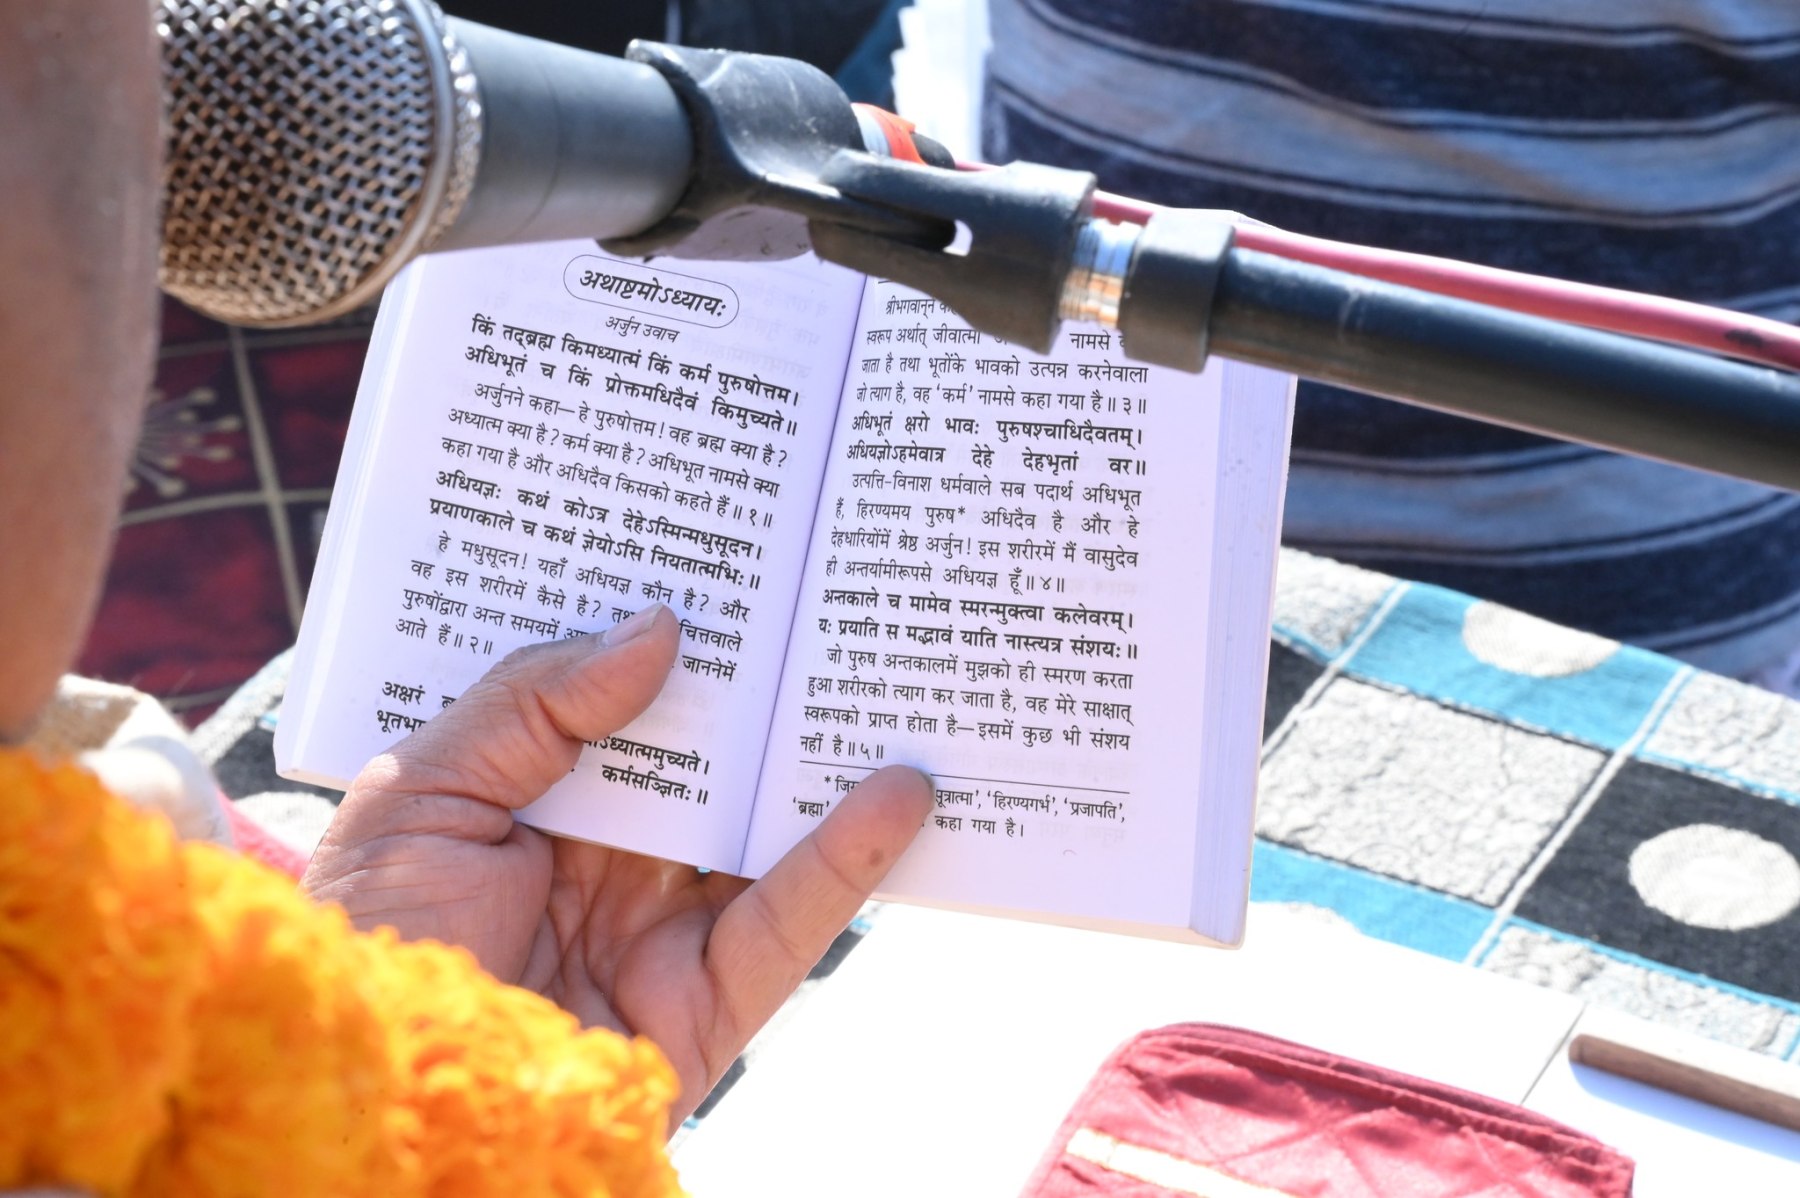 अथाष्टमोऽध्यायः
अर्जुन उवाच
किं तद्ब्रह्म किमध्यात्मं किं कर्म पुरुषोत्तम।
अधिभूतं च किं प्रोक्तमधिदैवं किमुच्यते॥
अर्जुनने कहा— हे पुरुषोत्तम! वह ब्रह्म क्या है?
अध्यात्म क्या है? कर्म क्या है? अधिभूत नामसे क्या
कहा गया है और अधिदैव किसको कहते हैं॥१॥
अधियज्ञः कथं कोऽत्र देहेऽस्मिन्मधुसूदन।
प्रयाणकाले च कथं ज्ञेयोऽसि नियतात्मभिः॥
हे मधुसूदन! यहाँ अधियज्ञ कौन है? और
वह इस शरीरमें कैसे है? चित्तवाले
पुरुषोंद्वारा अन्त समयमें जाननेमें
आते हैं॥२॥
अक्षरं
कर्मसञ्ज्ञितः॥
श्रीभगवान्‌ने
स्वरूप अर्थात् जीवात्मा नामसे
जाता है तथा भूतोंके भावको उत्पन्न करनेवाला
जो त्याग है, वह ‘कर्म’ नामसे कहा गया है॥३॥
अधिभूतं क्षरो भावः पुरुषश्चाधिदैवतम्।
अधियज्ञोऽहमेवात्र देहे देहभृतां वर॥
उत्पत्ति-विनाश धर्मवाले सब पदार्थ अधिभूत
हैं, हिरण्यमय पुरुष* अधिदैव है और हे
देहधारियोंमें श्रेष्ठ अर्जुन! इस शरीरमें मैं वासुदेव
ही अन्तर्यामीरूपसे अधियज्ञ हूँ॥४॥
अन्तकाले च मामेव स्मरन्मुक्त्वा कलेवरम्।
यः प्रयाति स मद्भावं याति नास्त्यत्र संशयः॥
जो पुरुष अन्तकालमें मुझको ही स्मरण करता
हुआ शरीरको त्याग कर जाता है, वह मेरे साक्षात्
स्वरूपको प्राप्त होता है—इसमें कुछ भी संशय
नहीं है॥५॥
सूत्रात्मा’, ‘हिरण्यगर्भ’, ‘प्रजापति’,
‘ब्रह्मा’ कहा गया है।